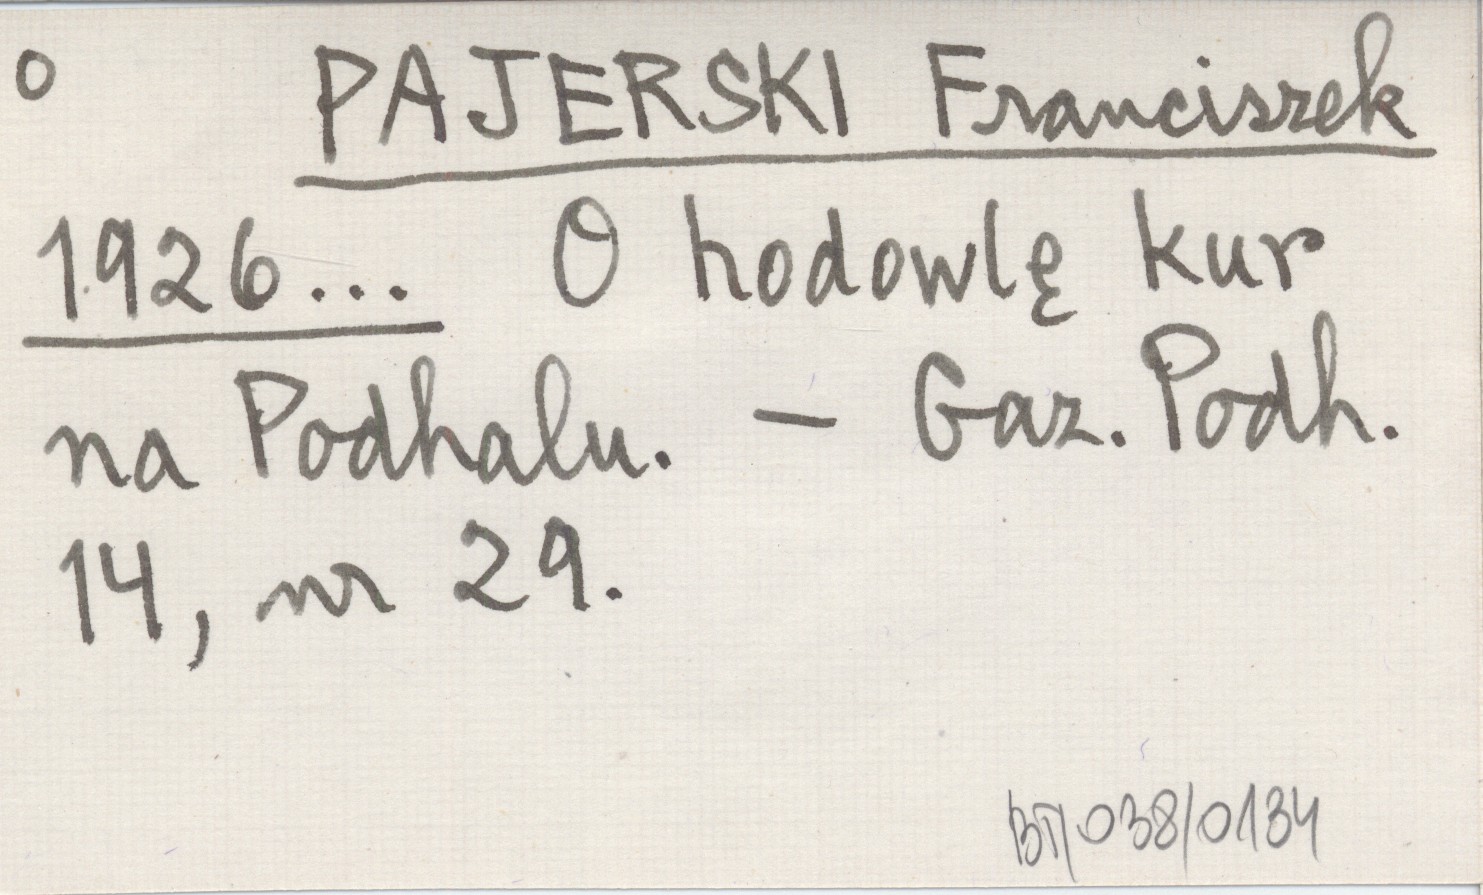 o PAJERSKI Franciszek
1926... O hodowlę kur
na Podhalu. — Gaz. Podh.
14, nr 29.
BT/038/0134